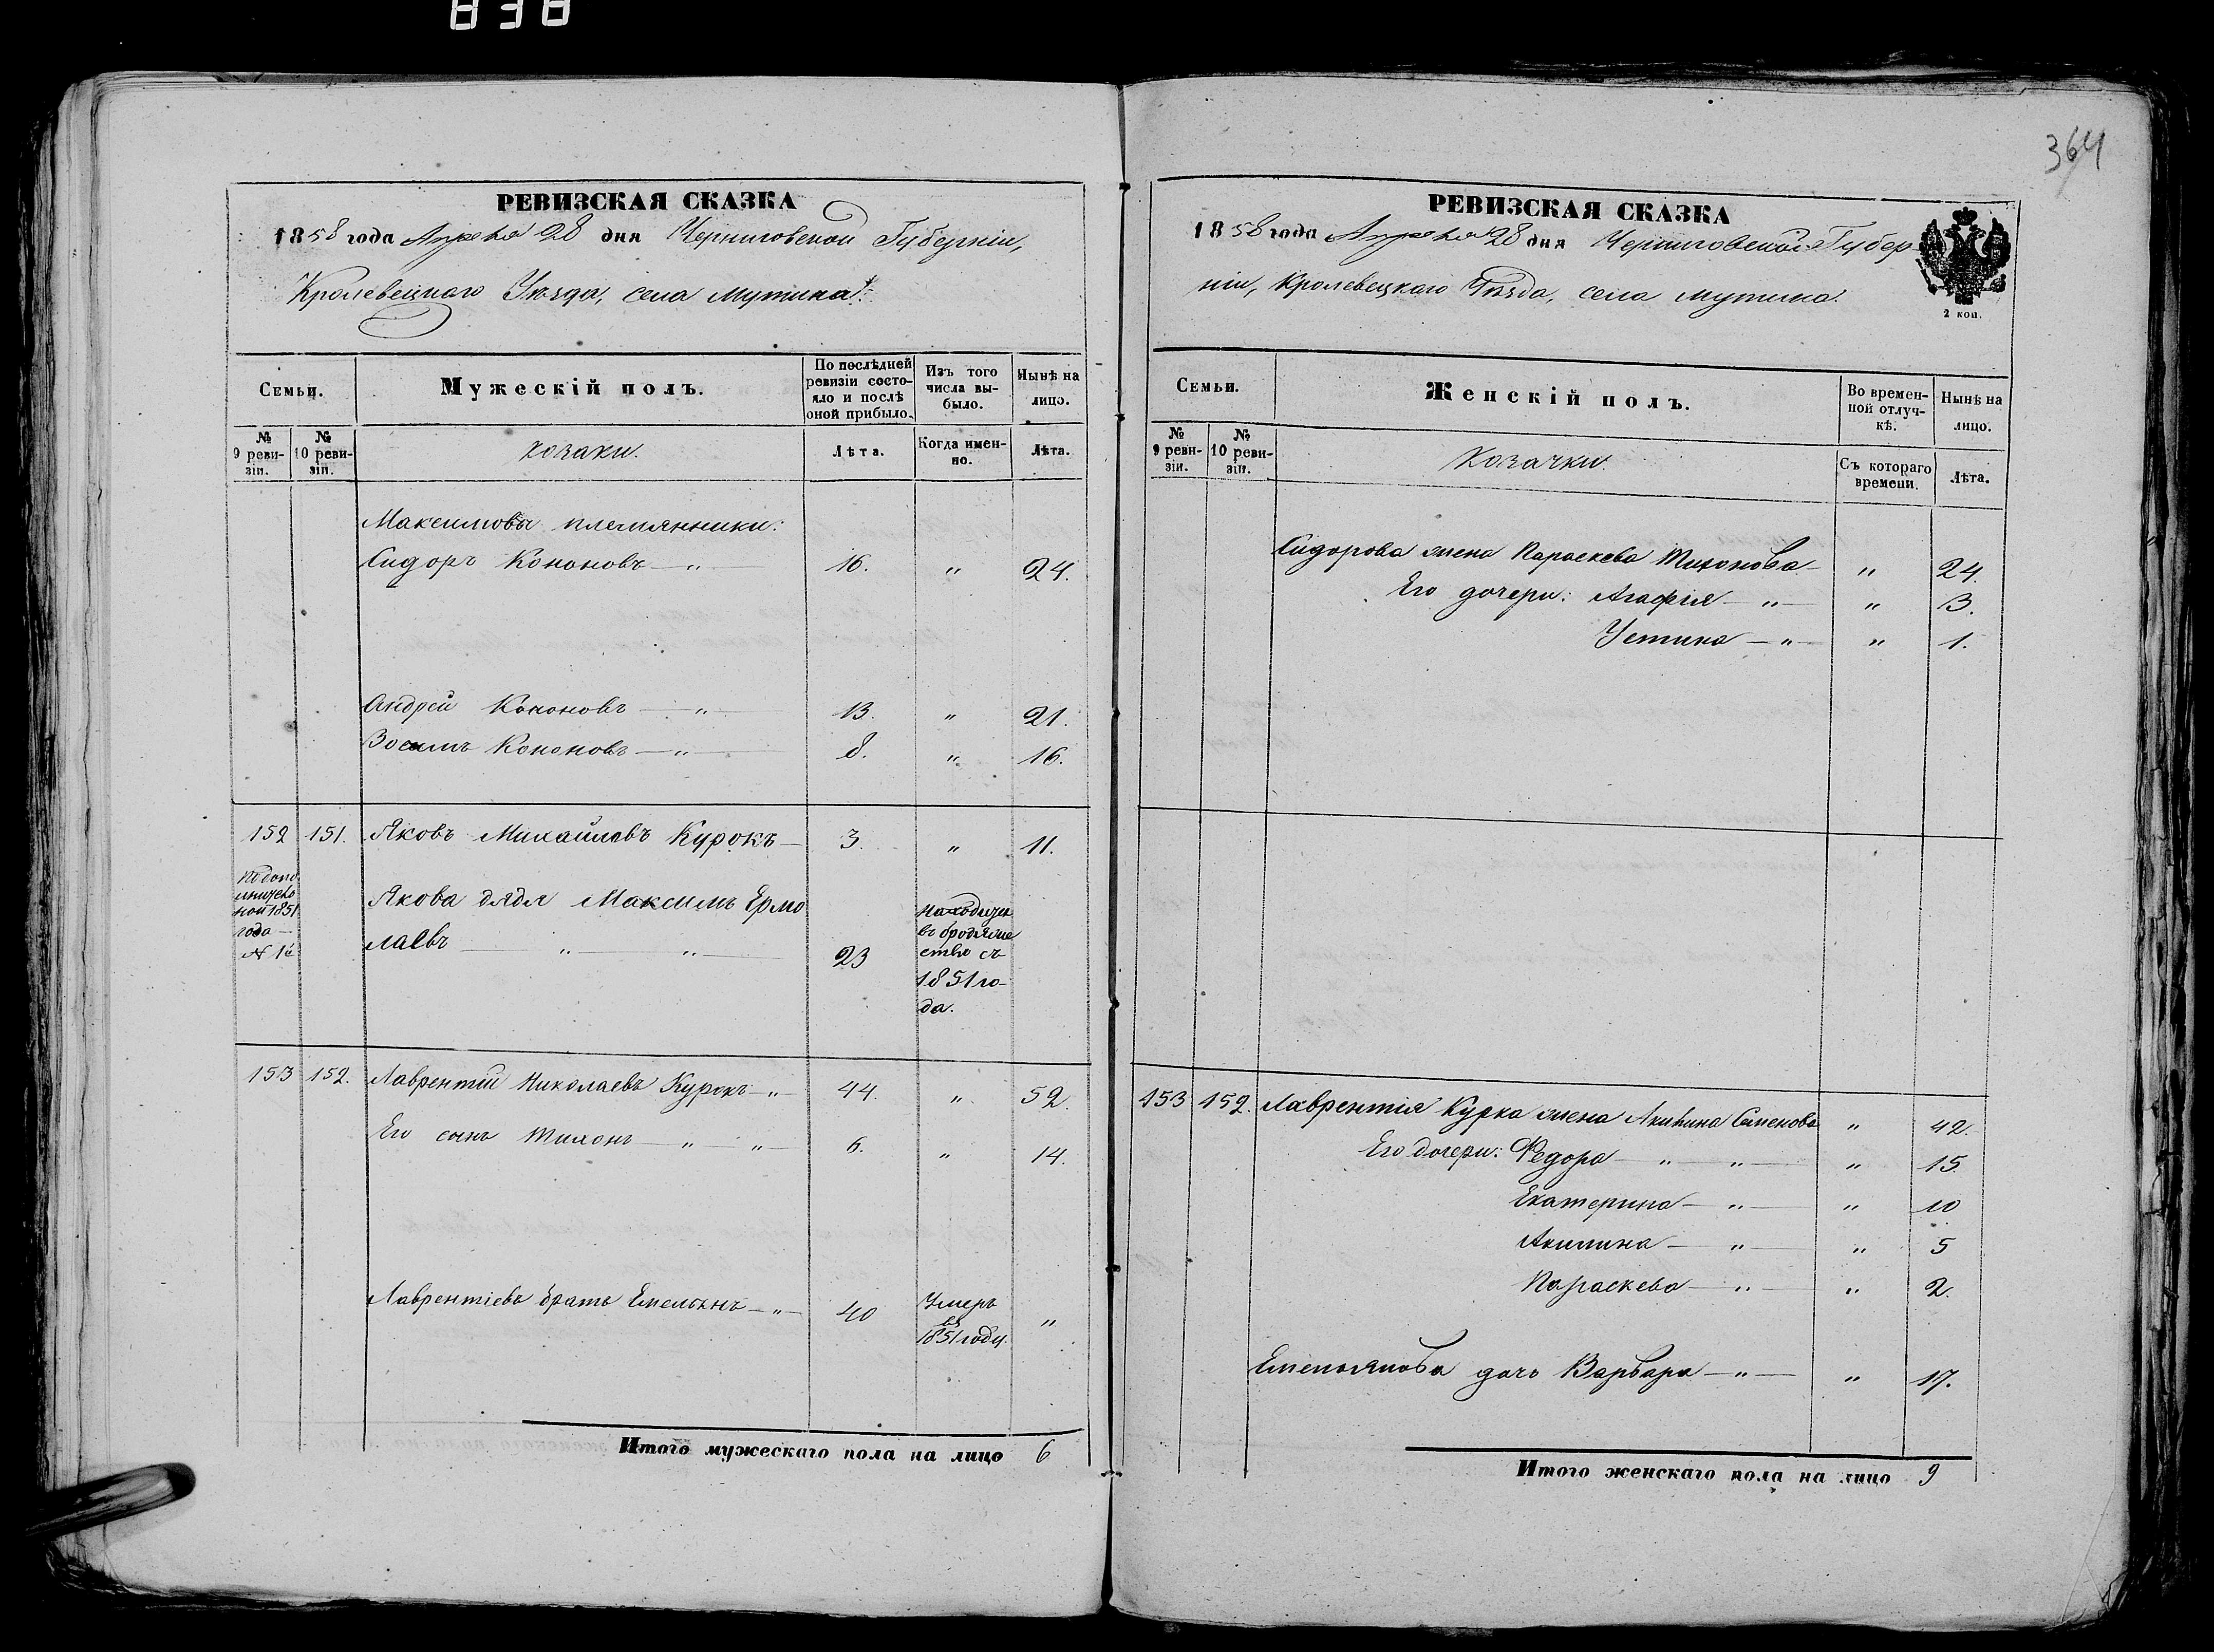 838
364
РЕВИЗСКАЯ СКАЗКА
1858 года Апреля 28 дня Черниговской Губерніи,
Кролевецкаго Уѣзда, села Мутина.
Семьи.
Мужескій полъ.
По послѣдней ревизіи состояло и послѣ оной прибыло.
Изъ того числа выбыло.
Нынѣ на лицо.
№ 9 ревизіи.
№ 10 ревизіи.
козаки.
Лѣта.
Когда именно.
Лѣта.
Максимовы племянники:
Сидоръ Кононовъ — " — 16. " 24.
Андрей Кононовъ — " — 13. " 21.
Кононовъ — " — 8. " 16.
152 151. Яковъ Михайловъ Курокъ — 3. " 11.
1851
года —
Якова дядя Максимъ Ермо
лаевъ — " — " — 23
въ бродяже
ствѣ съ
1851 го-
да.
153 152. Лаврентій Николаевъ Курокъ — " — 44. " 52.
Его сынъ Тихонъ — " — " — 6. " 14.
Лаврентіевъ братъ Емельянъ — " — 40 Умеръ "
въ
1851 году.
Итого мужескаго пола на лицо 6
РЕВИЗСКАЯ СКАЗКА
1858 года Апреля 28 дня Черниговской Губер
ніи, Кролевецкаго Уѣзда, села Мутина.
2 коп.
Семьи.
Женскій полъ.
Во временной отлучкѣ.
Нынѣ на лицо.
№ 9 ревизіи.
№ 10 ревизіи.
Козачки
Съ котораго времени.
Лѣта.
Сидорова жена Параскева Тихонова — " 24.
Его дочери: Агафія — " — " 3.
Устина — " — " 1.
153 152. Лаврентія Курка жена Акилина Семенова " 42.
Его дочери: Федора — " — " — " 15.
Екатерина — " — " 10
Акилина — " — " 5
Параскева — " — " 2.
Емельянова дочь Варвара — " — " 17.
Итого женскаго пола на лицо 9